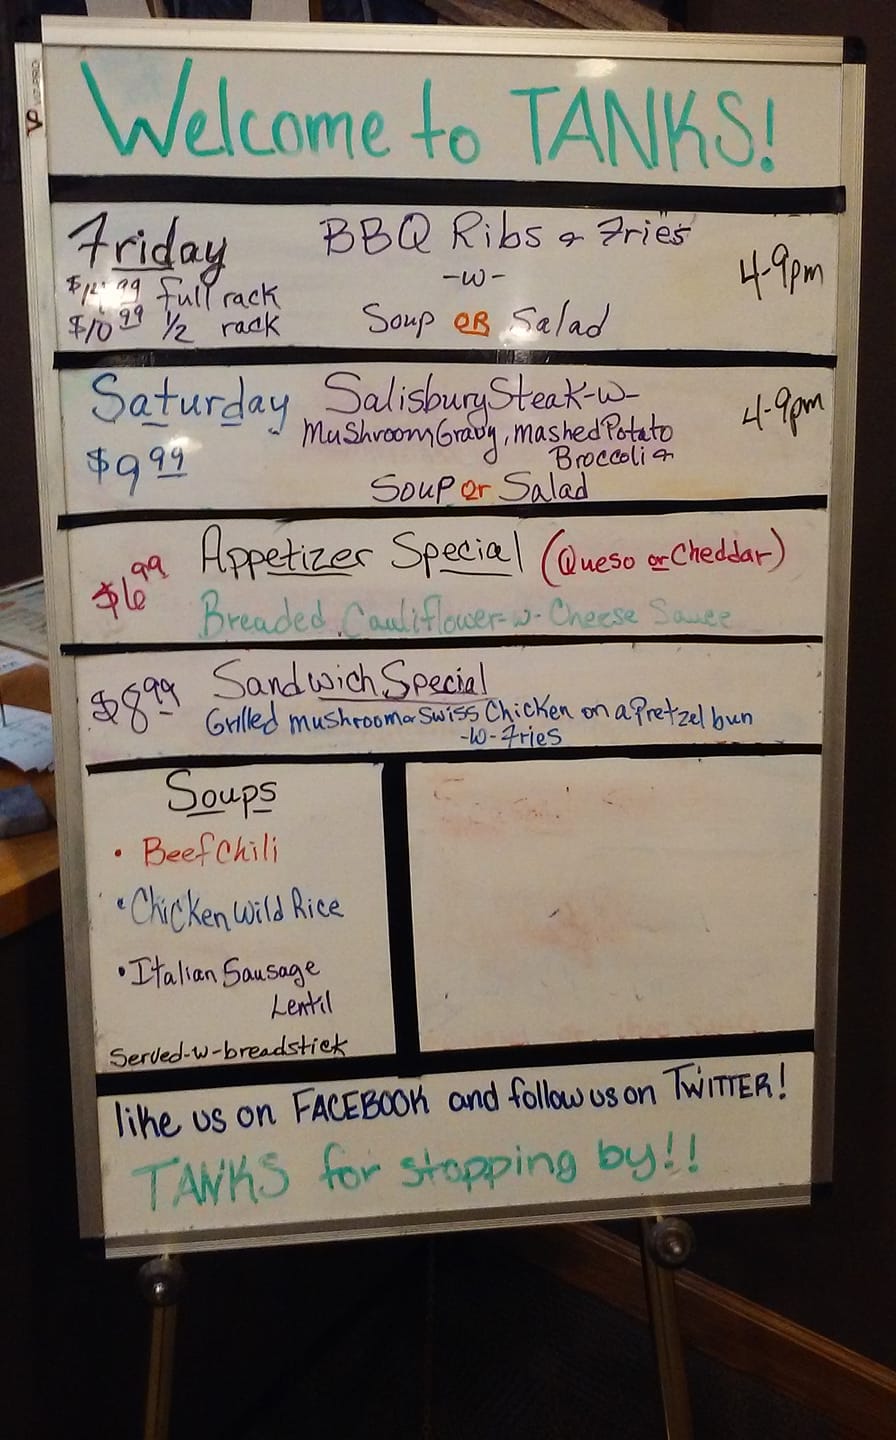 Welcome to TANKS!
Friday
BBQ Ribs & Fries
4-9pm
-w-
$14.99 full rack
$10.99 1/2 rack
Soup OR Salad
Saturday
Salisbury Steak-w-
4-9pm
Mushroom Gravy, Mashed Potato
$9.99
Broccoli &
Soup or Salad
Appetizer Special (Queso or Cheddar)
$6.99
Breaded Cauliflower-w- Cheese Sauce
Sandwich Special
$8.99
Grilled mushroom & Swiss Chicken on a Pretzel bun
-w- Fries
Soups
• Beef Chili
• Chicken Wild Rice
• Italian Sausage
Lentil
Served-w-breadstick
like us on FACEBOOK and follow us on TWITTER!
TANKS for stopping by!!